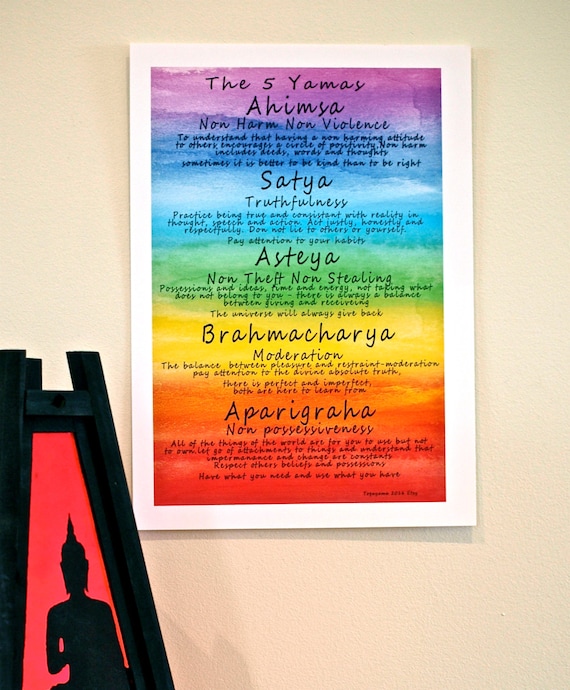 The 5 Yamas
Ahimsa
Non Harm Non Violence
To understand that having a non harming attitude
to others encourages a circle of positivity.Non harm
includes deeds, words and thoughts
sometimes it is better to be kind than to be right
Satya
Truthfulness
Practice being true and consistant with reality in
thought, speech and action. Act justly, honestly and
respectfully. Don not lie to others or yourself.
Pay attention to your habits
Asteya
Non Theft Non Stealing
Possessions and ideas, time and energy, not taking what
does not belong to you - there is always a balance
between giving and receiveing
The universe will always give back
Brahmacharya
Moderation
The balance between pleasure and restraint-moderation
pay attention to the divine absolute truth,
there is perfect and imperfect,
both are here to learn from
Aparigraha
Non possessiveness
All of the things of the world are for you to use but not
to own.let go of attachments to things and understand that
impermanance and change are constants
Respect others beliefs and possessions
Have what you need and use what you have
2016